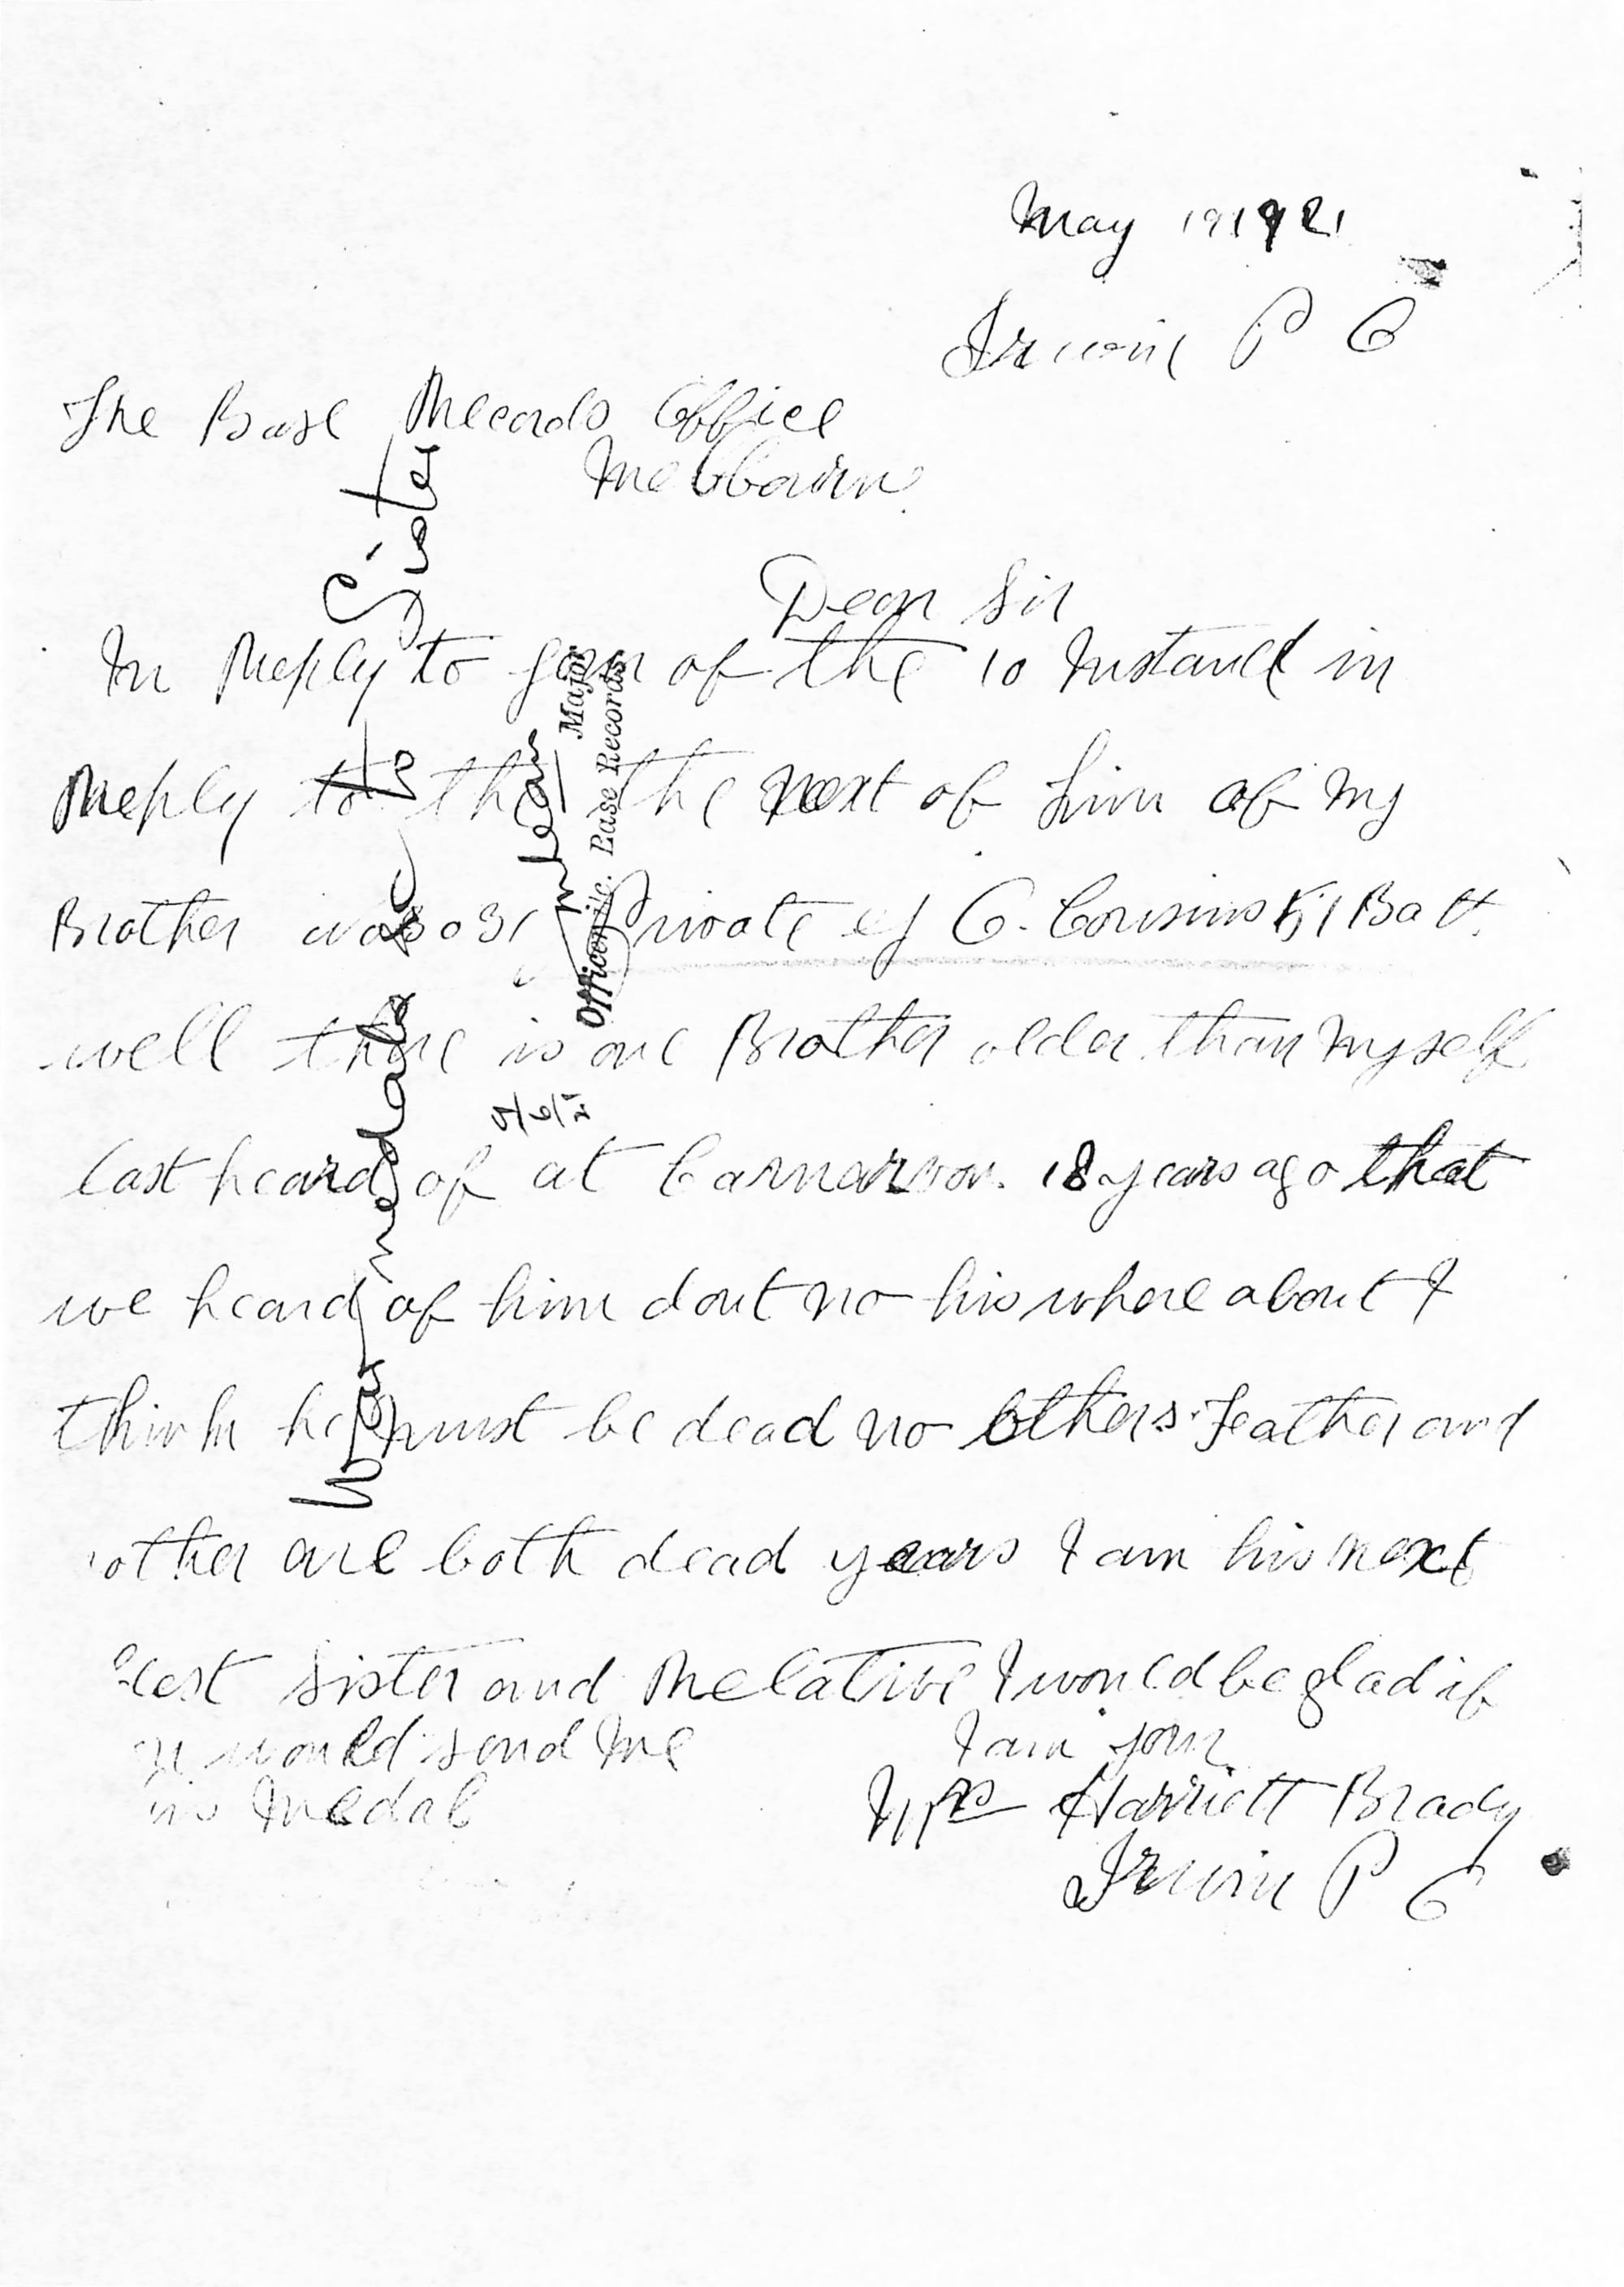 May 19 1921
Irwin P O
The Base Records Office
Melbourn
Dear Sir
In Reply to yours of the 10 Instant in
Reply to the the next of kin of my
Brother Private C. Cousins 51 Batt.
well there is one Brother older than Myself
last heard of at Carnarvon. 18 years ago that
we heard of him dont no his where about I
think he must be dead no others. Feather and
other are both dead years I am his next
sister and Relative I would be glad if
would send me
Medal
I am your
Mrs Harriett Brady
Irwin P O
Issue medals to Sister
Major
Officer i/c. Base Records